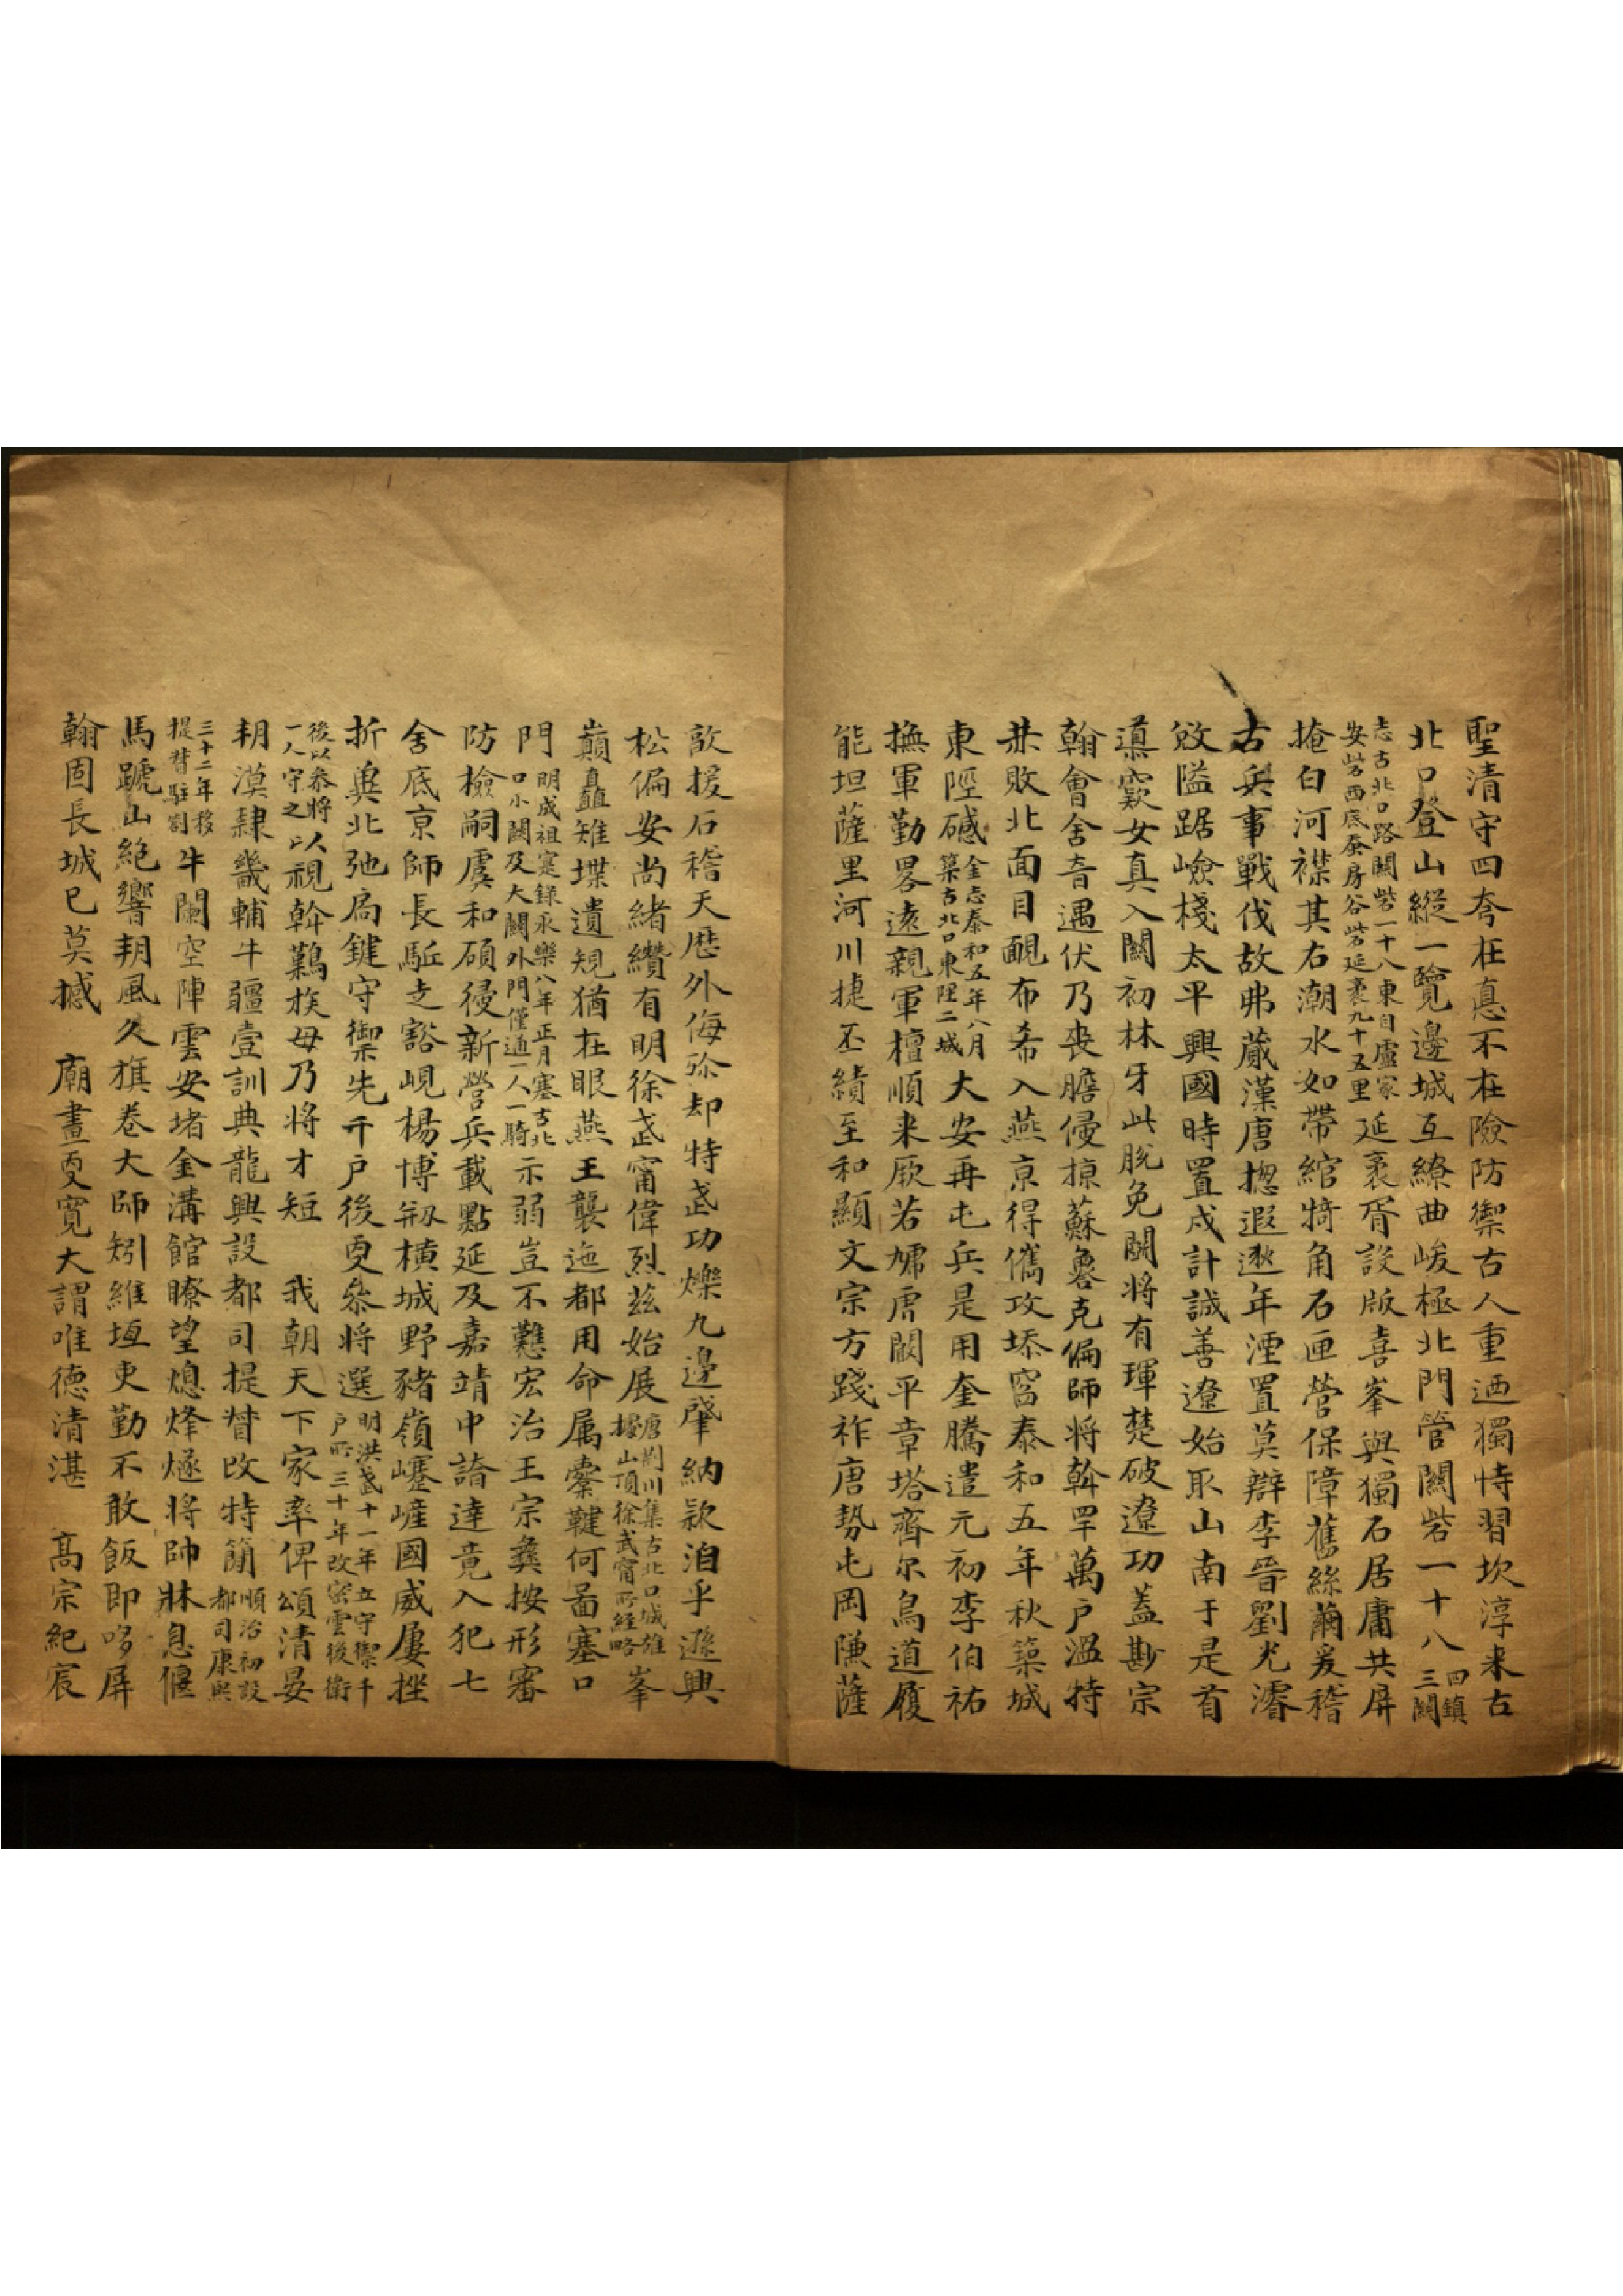 聖清守四夸在悳不在險防禦古人重迺獨恃習坎淳来古
北口登山縱一覽邊城互繚曲峻極北門管關砦一十八四鎮三關
志古北口路關砦一十八東自盧家安砦西底蚕房谷砦延袤九十五里延袤胥設版喜峯與獨石居庸共屏
掩白河襟其右潮水如帶綰犄角石匣营保障舊絲繭爰稽
古兵事戰伐故弗蕆漢唐揔遐邈年湮置莫辯李晉劉光濬
攽隘踞嶮棧太平興國時置戍計誠善遼始取山南于是首
導窾女真入關初林牙此脫免關将有琿楚破遼功蓋尠宗
翰會舍音遇伏乃丧膽侵掠蘇魯克偏師将斡罕萬戶溫特
赫敗北面目靦布希入燕京得儁攻塔窩泰和五年秋築城
東陘磩金志泰和五年八月築古北口東陘二城大安再屯兵是用奎騰遣元初李伯祐
撫軍勤畧遠親軍檀順来厥若虓虎闞平章塔齊尔鳥道履
能坦薩里河川捷丕績至和顯文宗方踐祚唐勢屯岡隒薩
敦援石稽天厯外侮弥却特武功爍九邊肇納款洎乎遜興
松偏安尚緒纘有明徐武甯偉烈茲始展唐荆川集古北口城雄據山頂徐武甯所经略峯
巔矗雉堞遺規猶在眼燕王襲迤都用命属櫜鞬何啚塞口
門明成祖寔錄永樂八年正月塞古北口小關及大關外門僅通一人一騎示弱豈不戁宏治王宗彝按形審
防檢嗣虞和碩侵新營兵載點延及嘉靖中諳達竟入犯七
舍底京師長駈走豁峴楊博剏横城野豬嶺巙嵼國威屢挫
折奥北弛扃鍵守禦先千戶後更叅将選明洪武十一年立守禦千戶所三十年改密雲後衛
後以叅将一人守之以視斡鷬族毋乃将才短　我朝天下家率俾頌清晏
朔漠隷畿輔牛疆壹訓典龍興設都司提督改特簡順治初設都司康熙
三十二年移提督駐劄牛闌空陣雲安堵金溝館瞭望熄烽燧将帥牀息偃
馬蹏山絶響朔風久旗卷大師矧維垣吏勤不敢飯即哆屏
翰固長城已莫撼　廟畫更寬大謂唯德清湛　髙宗紀宸